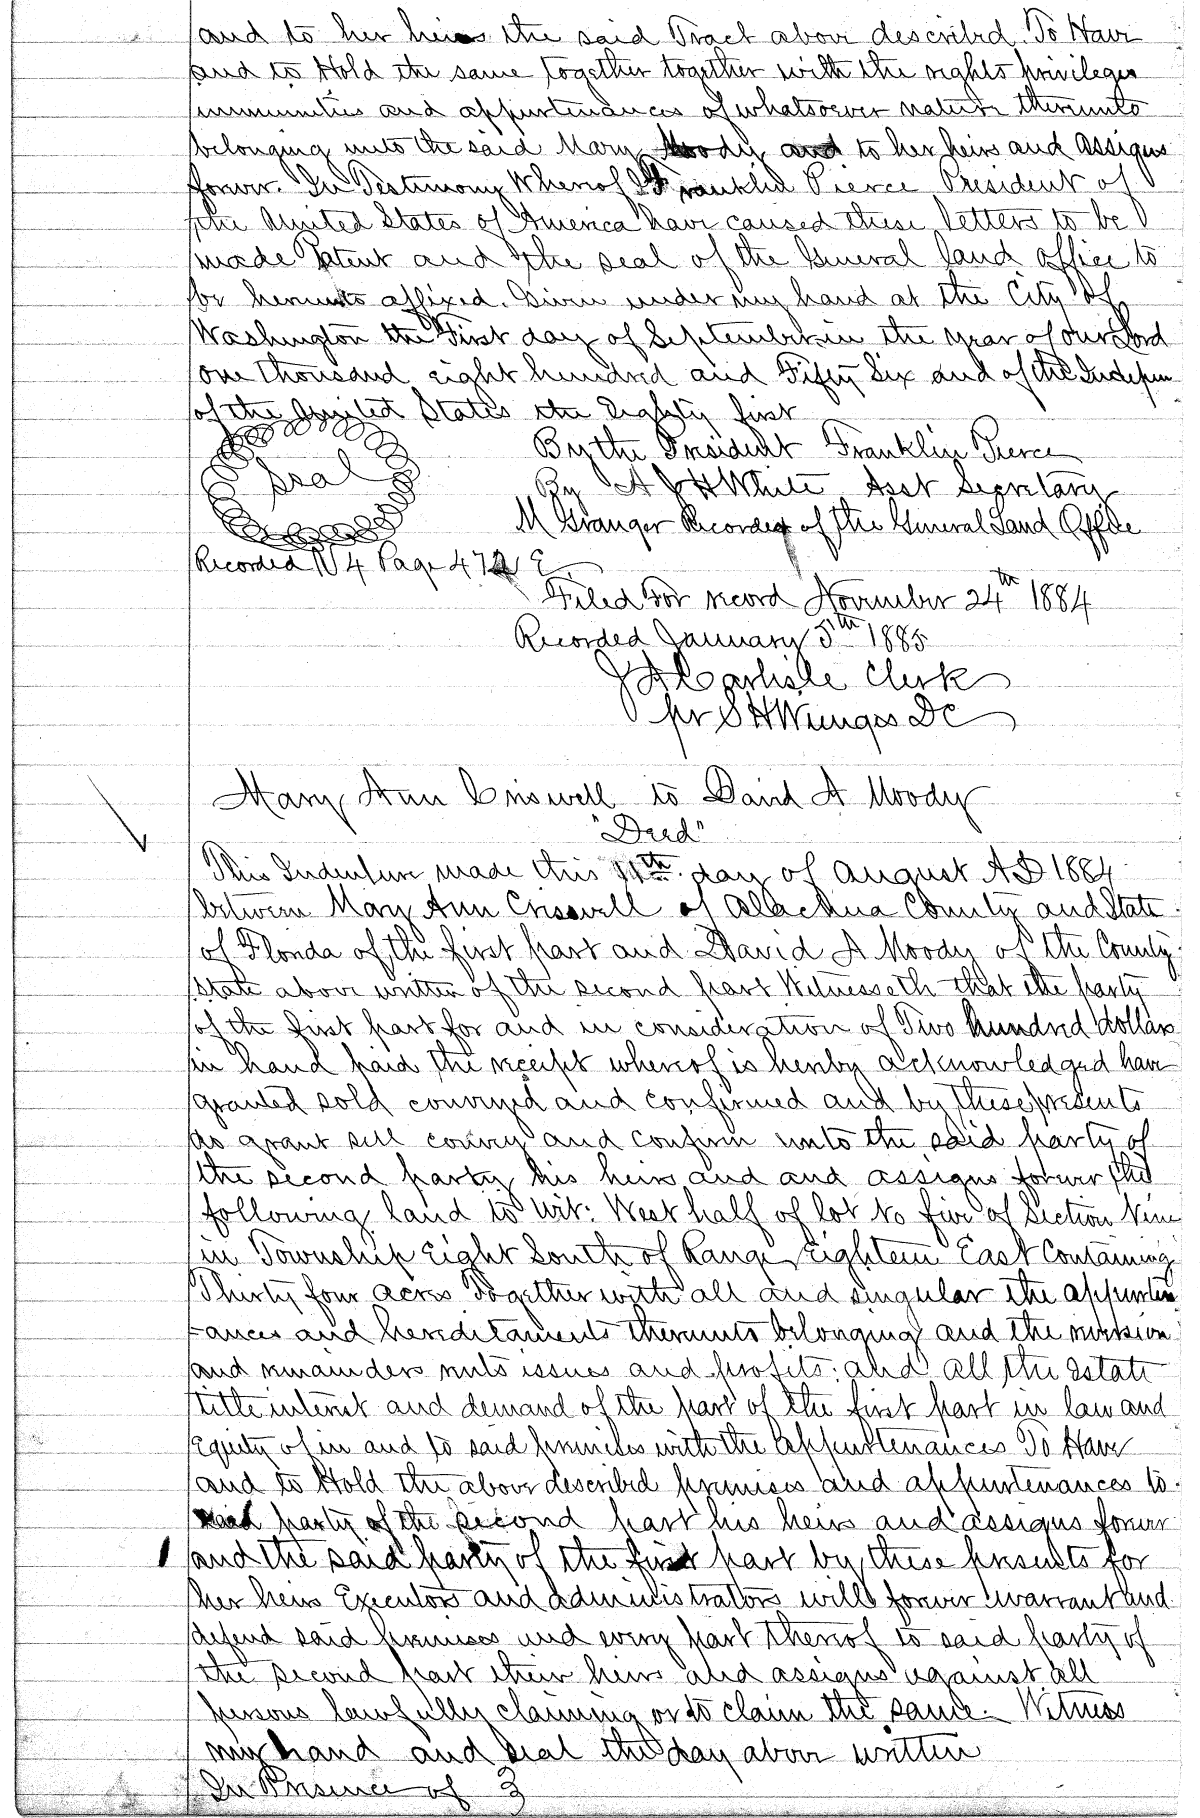 and to her heirs the said Tract above described. To Have
and to Hold the same together together with the rights privileges
immunities and appurtenances of whatsoever nature thereunto
belonging unto the said Mary Moody and to her heirs and assigns
forever. In Testimony Whereof I Franklin Pierce President of
the United States of America have caused these letters to be
made Patent and the seal of the General Land Office to
be hereunto affixed. Given under my hand at the City of
Washington the First day of September in the year of our Lord
one thousand eight hundred and Fifty Six and of the Indepen
of the United States the Eighty first
Seal
By the President Franklin Pierce
By A J H White Asst Secretary
M Granger Recorder of the General Land Office
Recorded N 4 Page 472
Filed For record November 24th 1884
Recorded January 5th 1885
J A Carlisle Clerk
pr S H Wienges DC
Mary Ann Criswell to David A Moody
"Deed"
This Indenture made this 11th day of August AD 1884
between Mary Ann Crisswell of Alachua County and State
of Florida of the first part and David A Moody of the County
State above written of the second part Witnesseth that the party
of the first part for and in consideration of Two hundred dollars
in hand paid the receipt whereof is hereby acknowledged have
granted sold conveyed and confirmed and by these presents
do grant sell convey and confirm unto the said party of
the second party his heirs and and assigns forever the
following land to wit: West half of lot No five of Section Nine
in Township Eight South of Range Eighteen East Containing
Thirty four acres Together with all and singular the appurten
-ances and hereditaments thereunto belonging and the reversion
and remainders rents issues and profits: and all the estate
title interest and demand of the part of the first part in law and
Equity of in and to said premises with the appurtenances To Have
and to Hold the above described premises and appurtenances to
said party of the second part his heirs and assigns forever
and the said party of the first part by these presents for
her heirs Executors and administrators will forever warrant and
defend said premises and every part thereof to said party of
the second part their heirs and assigns against all
persons lawfully claiming or to claim the same. Witness
my hand and seal the day above written
In Presence of 3